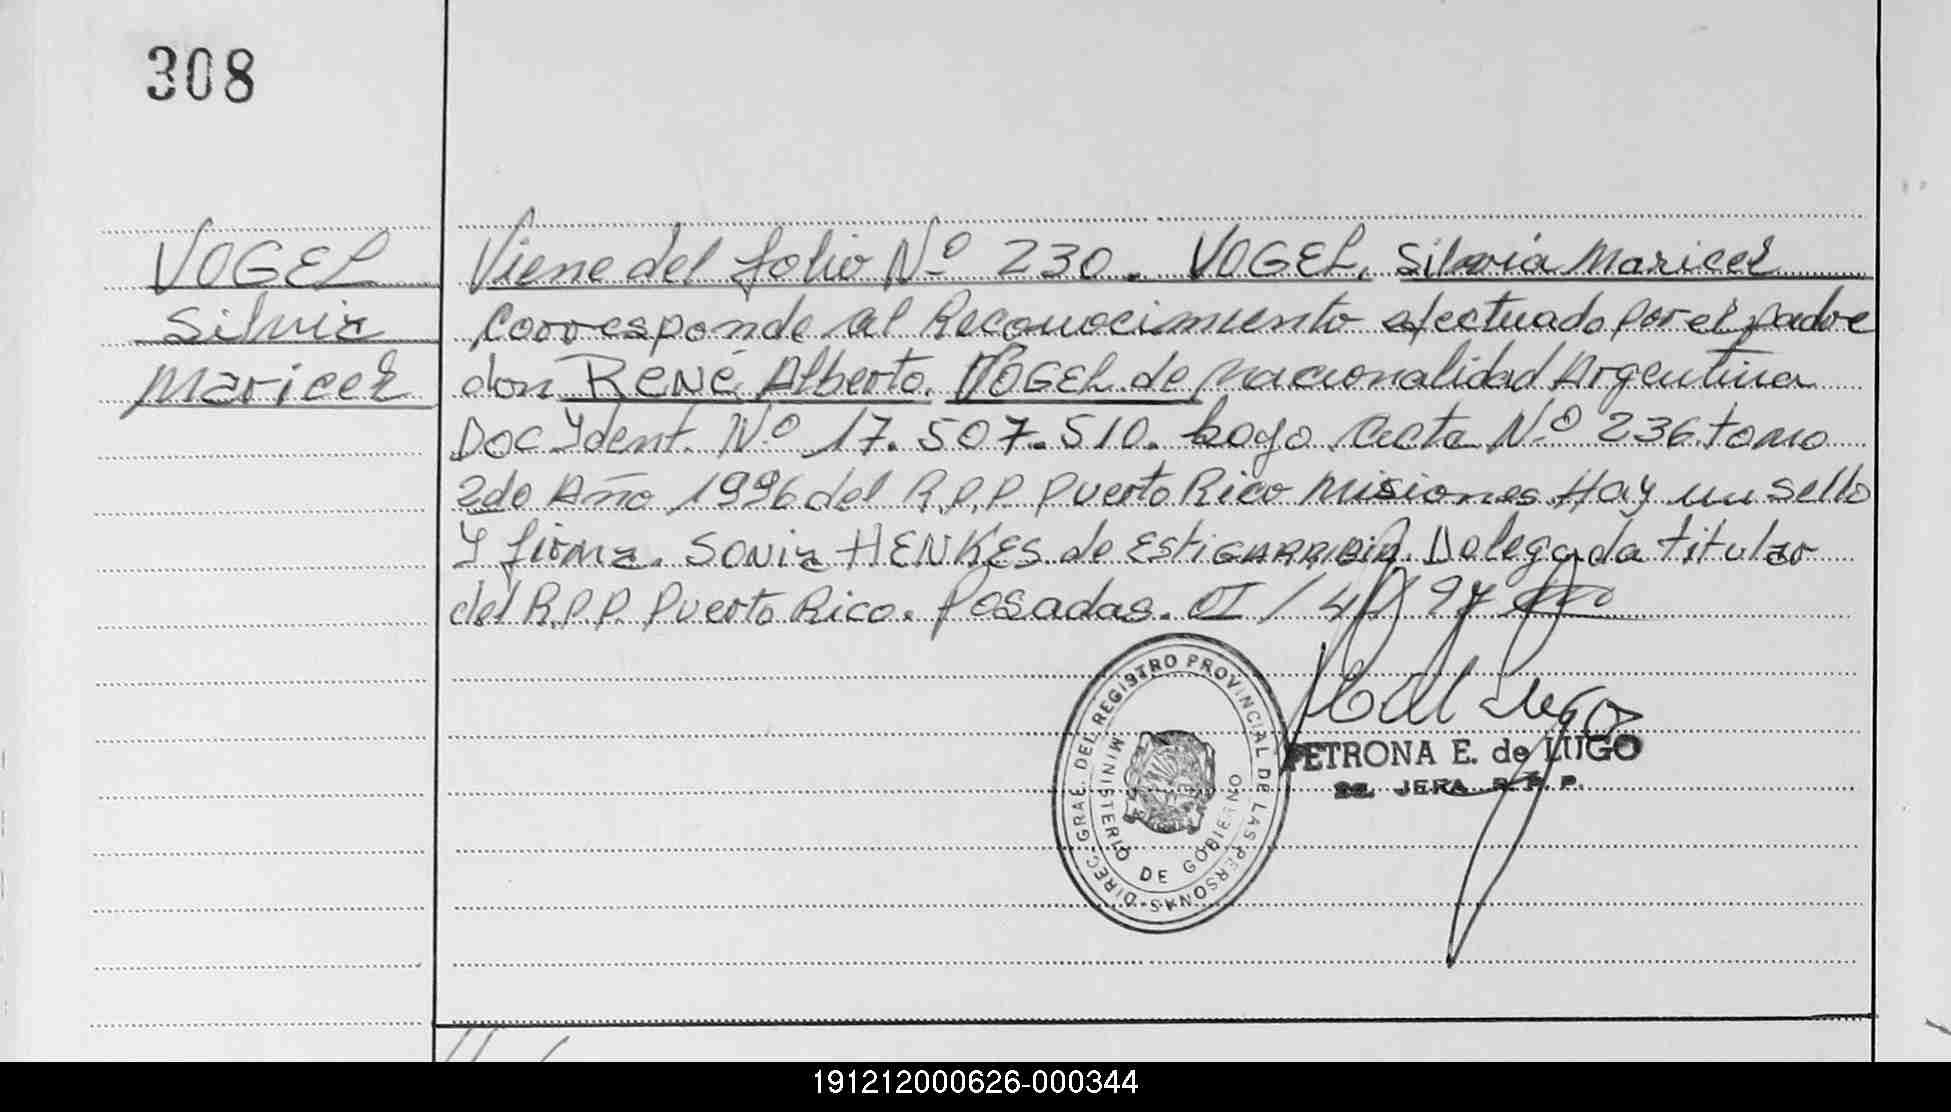 308
VOGEL
Silvia
Maricel
Viene del folio Nº 230. VOGEL, Silvia Maricel
Corresponde al Reconocimiento efectuado por el padre
don René Alberto VOGEL de nacionalidad Argentina
Doc Ydent. Nº 17.507.510. bajo Acta Nº 236 tomo
2do Año 1996 del R.P.P. Puerto Rico Misiones. Hay un sello
y firma. Sonia HENKES de ESTIGARRIBIA. Delegada titular
del R.P.P. Puerto Rico. Posadas.
DIREC. GRAL. DEL REGISTRO PROVINCIAL DE LAS PERSONAS
MINISTERIO DE GOBIERNO
PETRONA E. de LUGO
JEFA R.P.P.
191212000626-000344